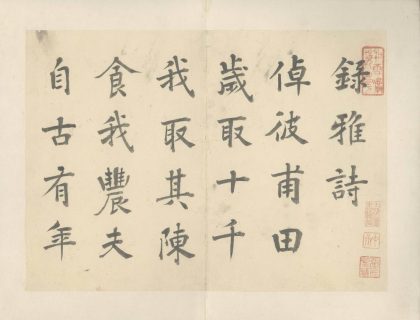 錄雅詩
倬彼甫田
歲取十千
我取其陳
食我農夫
自古有年